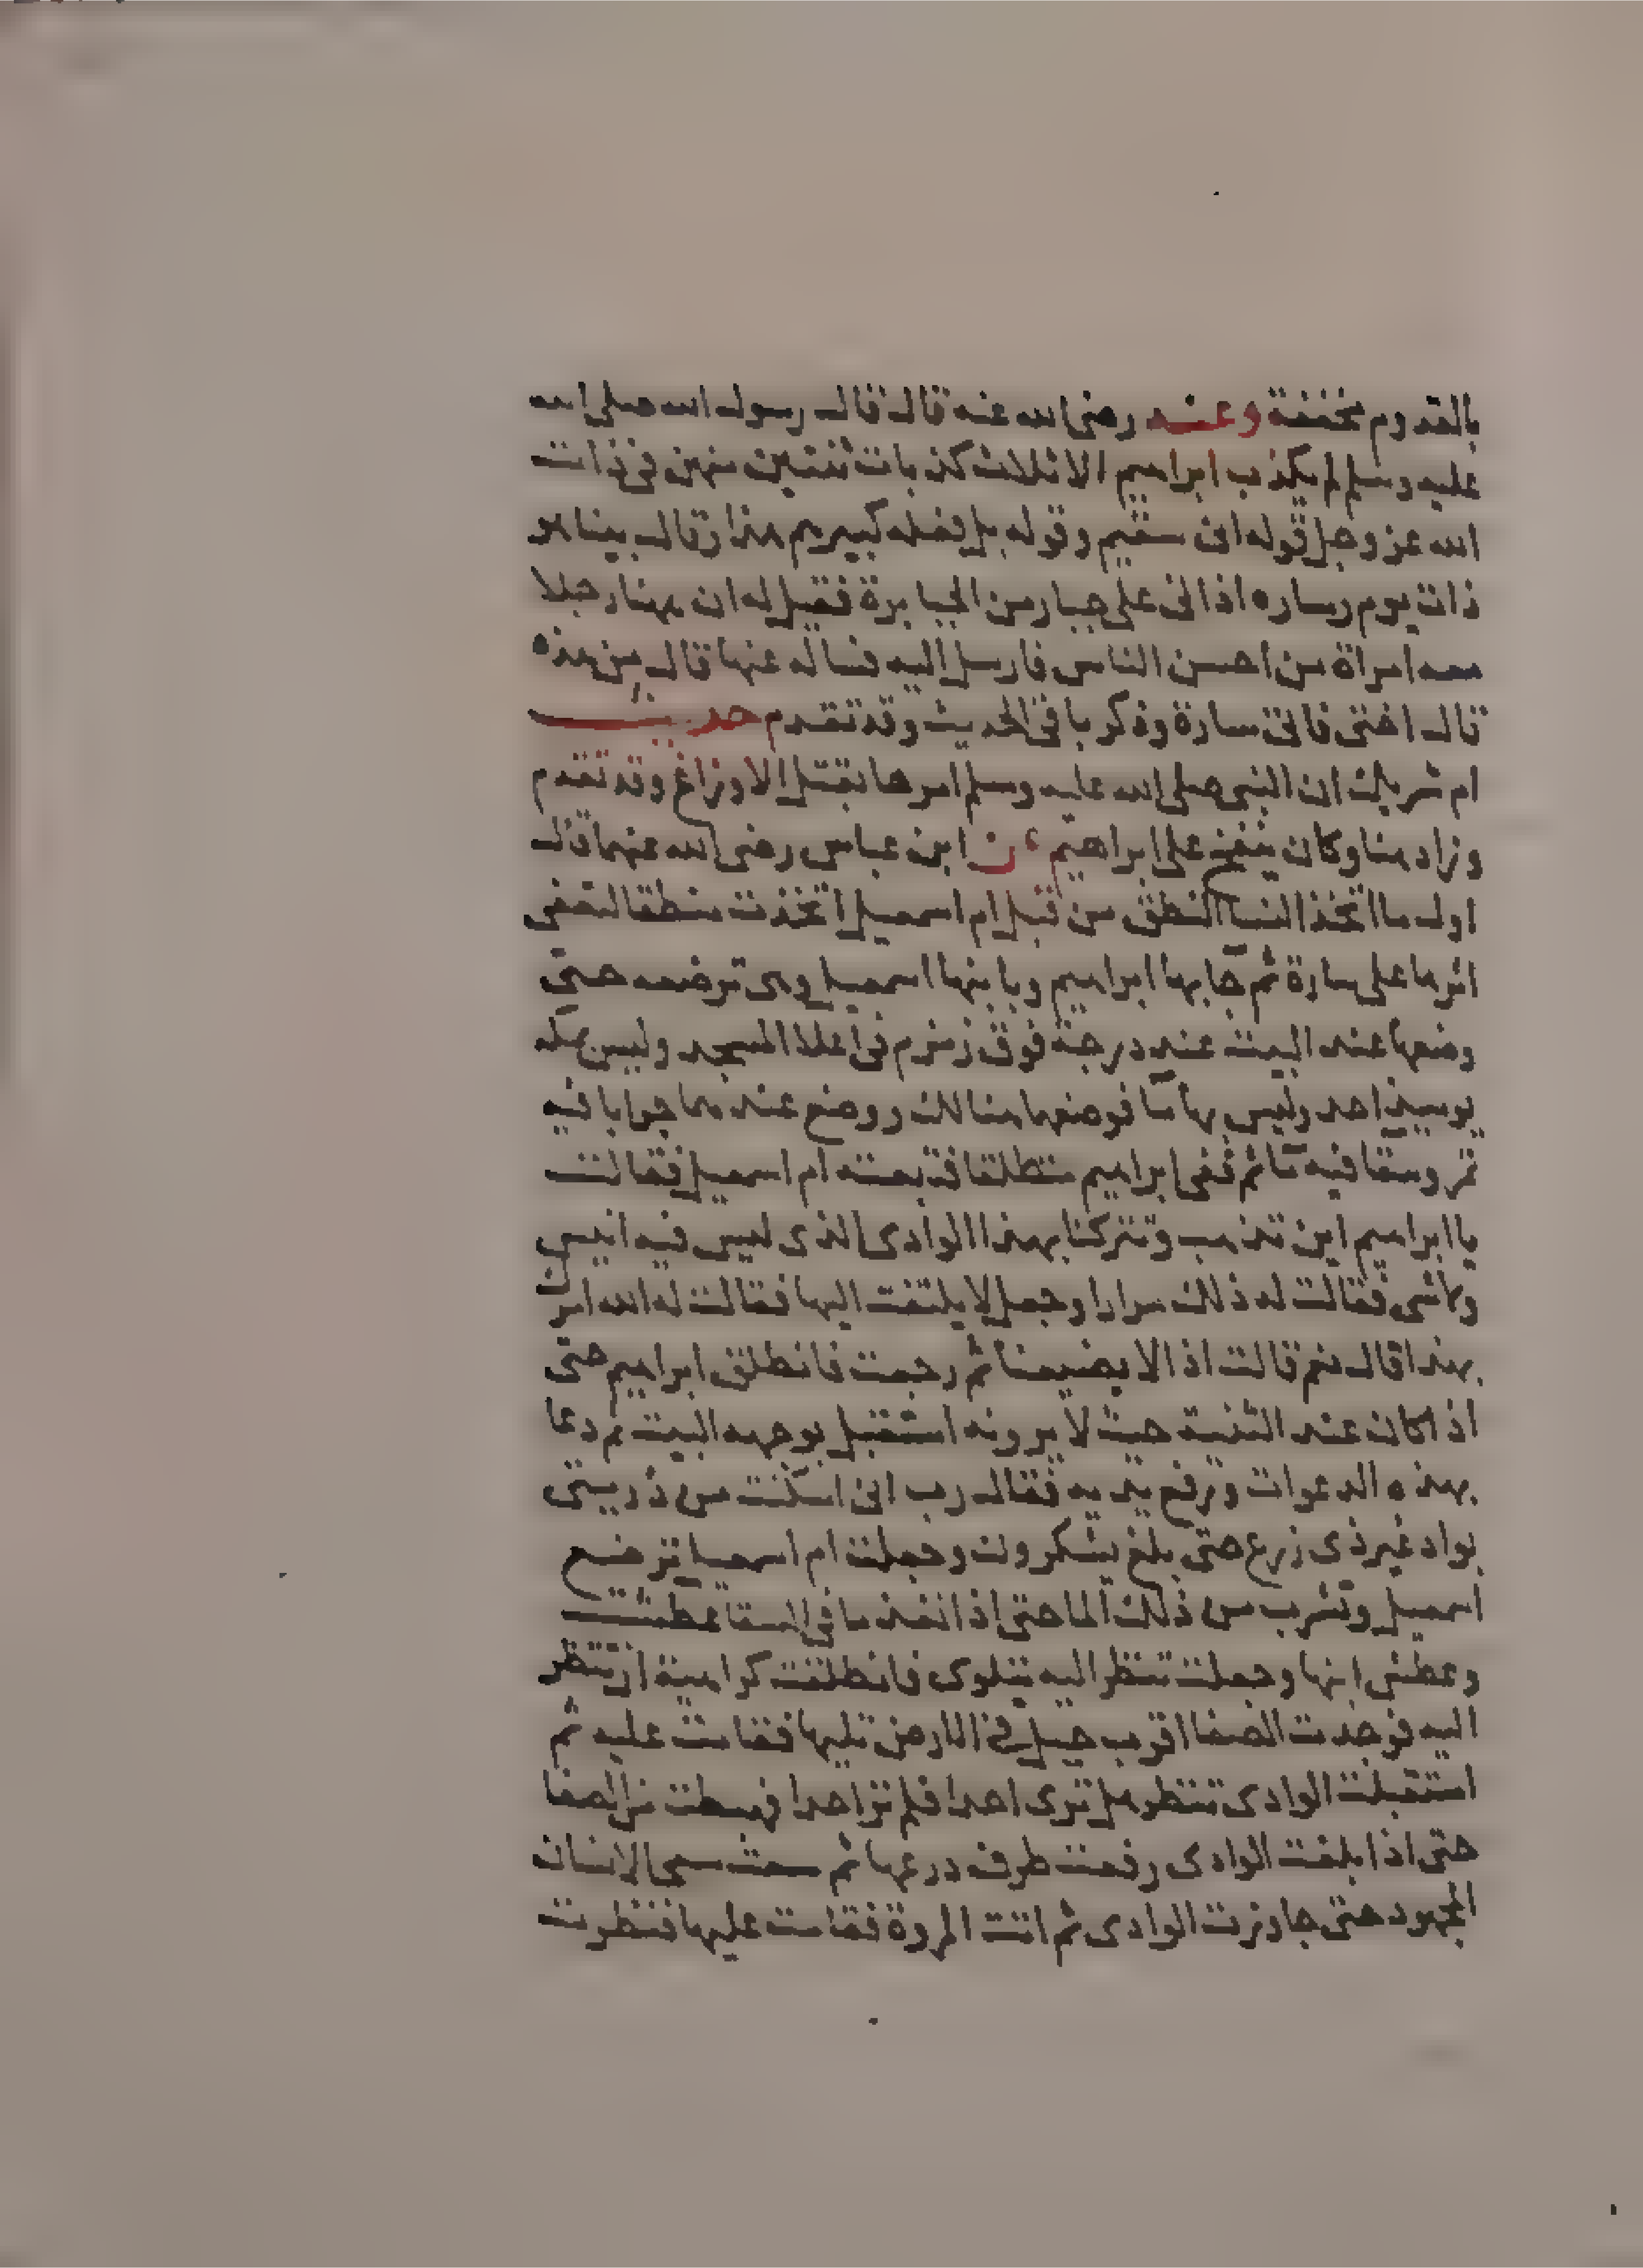 بالقدوم مخففة وعنه رضى الله عنه قال قال رسول الله صلى الله
عليه وسلم لم يكذب ابراهيم الا ثلاث كذبات ثنتين منهن فى ذات
الله عز وجل قوله انى سقيم وقوله بل فعله كبيرهم هذا وقال بينا هو
ذات يوم وساره اذ اتى على جبار من الجبابرة فقيل له ان ههنا رجلا
معه امراة من احسن الناس فارسل اليه فساله عنها قال من هذه
قال اختى فاتى سارة وذكر باقى الحديث وقد تقدم حديث
ام شريك ان النبى صلى الله عليه وسلم امرها بقتل الاوزاغ وقد تقدم
وزاد هنا وكان ينفخ على ابراهيم ابن عباس رضى الله عنهما قال
اول ما اتخذ النسا النطق من قبل ام اسمعيل اتخذت منطقا لتعفى
اثرها على سارة ثم جا بها ابراهيم وبابنها اسمعيل وهى ترضعه حتى
وضعها عند البيت عند درجة فوق زمزم فى اعلا المسجد وليس بمكه
يوميذ احد وليس بها ما فوضعها هنالك ووضع عندهما جرابا فيه
تمر وسقا فيه ما ثم قفى ابراهيم منطلقا فتبعته ام اسمعيل فقالت
يا ابراهيم اين تذهب وتتركنا بهذا الوادى الذى ليس فيه انيس
ولا شى فقالت له ذلك مرارا وجعل لا يلتفت اليها فقالت له الله امرك
بهذا قال نعم قالت اذا لا يضيعنا ثم رجعت فانطلق ابراهيم حتى
اذا كان عند الثنية حيث لا يرونه استقبل بوجهه البيت ثم دعا
بهذه الدعوات ورفع يديه فقال رب انى اسكنت من ذريتى
بواد غير ذى زرع حتى بلغ يشكرون وجعلت ام اسمعيل ترضع
اسمعيل وتشرب من ذلك الما حتى اذا نفد ما فى السقا عطشت
وعطش ابنها وجعلت تنظر اليه يتلوى فانطلقت كراهية ان تنظر
اليه فوجدت الصفا اقرب جبل فى الارض تليها فقامت عليه ثم
استقبلت الوادى تنظر هل ترى احدا فلم تر احدا فهبطت من الصفا
حتى اذا بلغت الوادى رفعت طرف درعها ثم سعت سعى الانسان
المجهود حتى جاوزت الوادى ثم اتت المروة فقامت عليها فنظرت